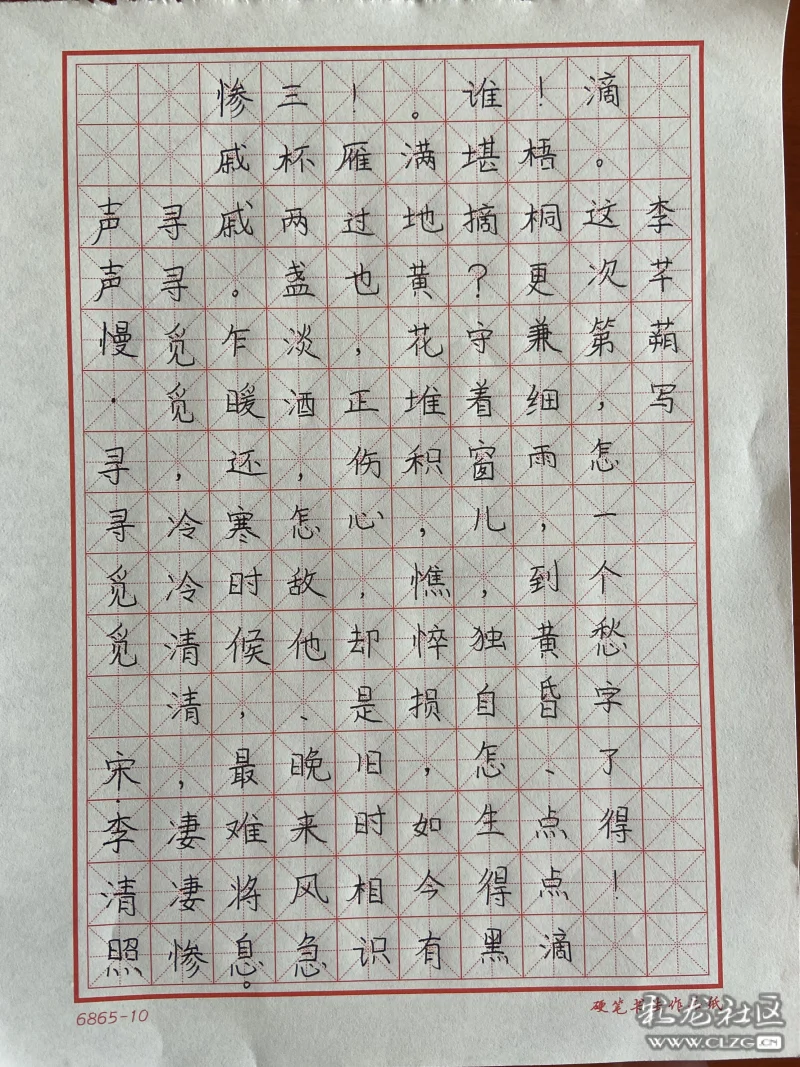 声声慢·寻寻觅觅 宋·李清照
寻寻觅觅，冷冷清清，凄凄惨
惨戚戚。乍暖还寒时候，最难将息。
三杯两盏淡酒，怎敌他、晚来风急
！雁过也，正伤心，却是旧时相识
。满地黄花堆积，憔悴损，如今有
谁堪摘？守着窗儿，独自怎生得黑
！梧桐更兼细雨，到黄昏、点点滴
滴。这次第，怎一个愁字了得！
李芊写
6865-10
硬笔书法作品纸
私龙社区
www.CLZG.CN